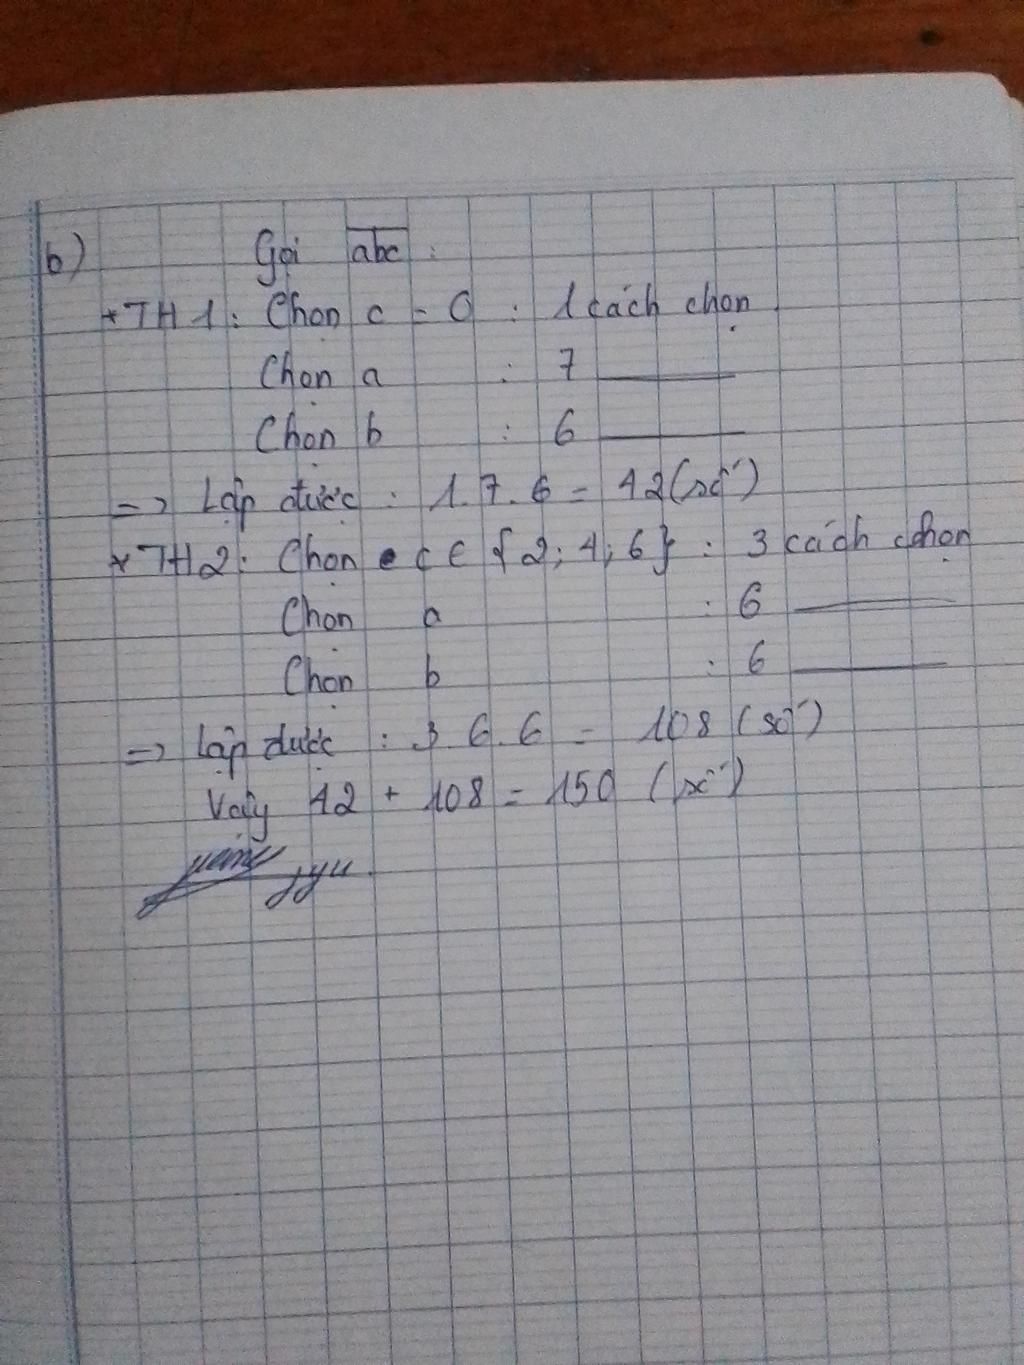 b) Gọi abc :
* TH1: Chọn c = 0 : 1 cách chọn
Chọn a : 7 ———
Chọn b : 6 ———
=> Lập được : 1.7.6 = 42 (số)
* TH2: Chọn c ∈ {2; 4; 6} : 3 cách chọn
Chọn a : 6 ———
Chọn b : 6 ———
=> Lập được : 3 6.6 = 108 (số)
Vậy 42 + 108 = 150 (số)